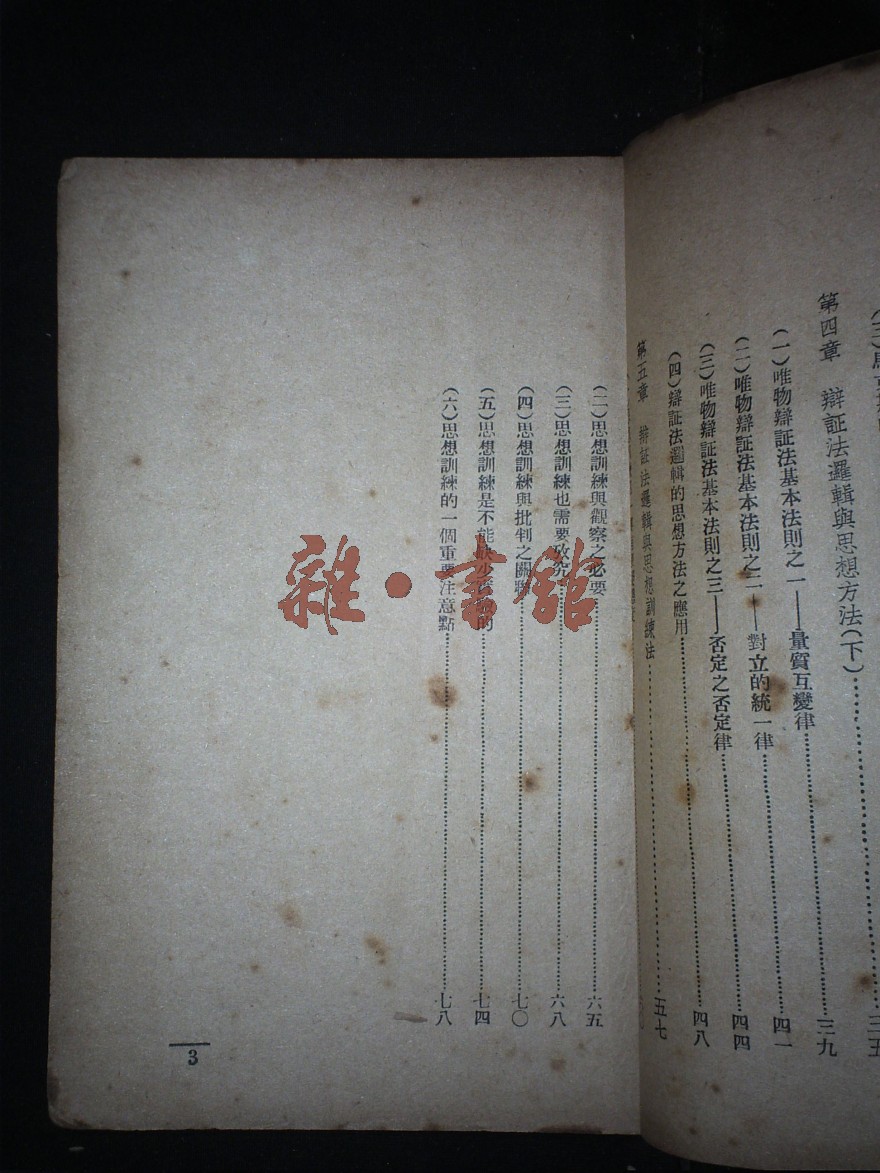 (三) 三五
第四章　辯証法邏輯與思想方法(下)……三九
(一)唯物辯証法基本法則之一——量質互變律……四一
(二)唯物辯証法基本法則之二——對立的統一律……四四
(三)唯物辯証法基本法則之三——否定之否定律……四八
(四)辯証法邏輯的思想方法之應用……五七
第五章　辯証法邏輯與思想訓練法……
(二)思想訓練與觀察之必要……六五
(三)思想訓練也需要攷究……六八
(四)思想訓練與批判之關聯……七〇
(五)思想訓練是不能缺少 的……七四
(六)思想訓練的一個重要注意點……七八
3
雜·書館